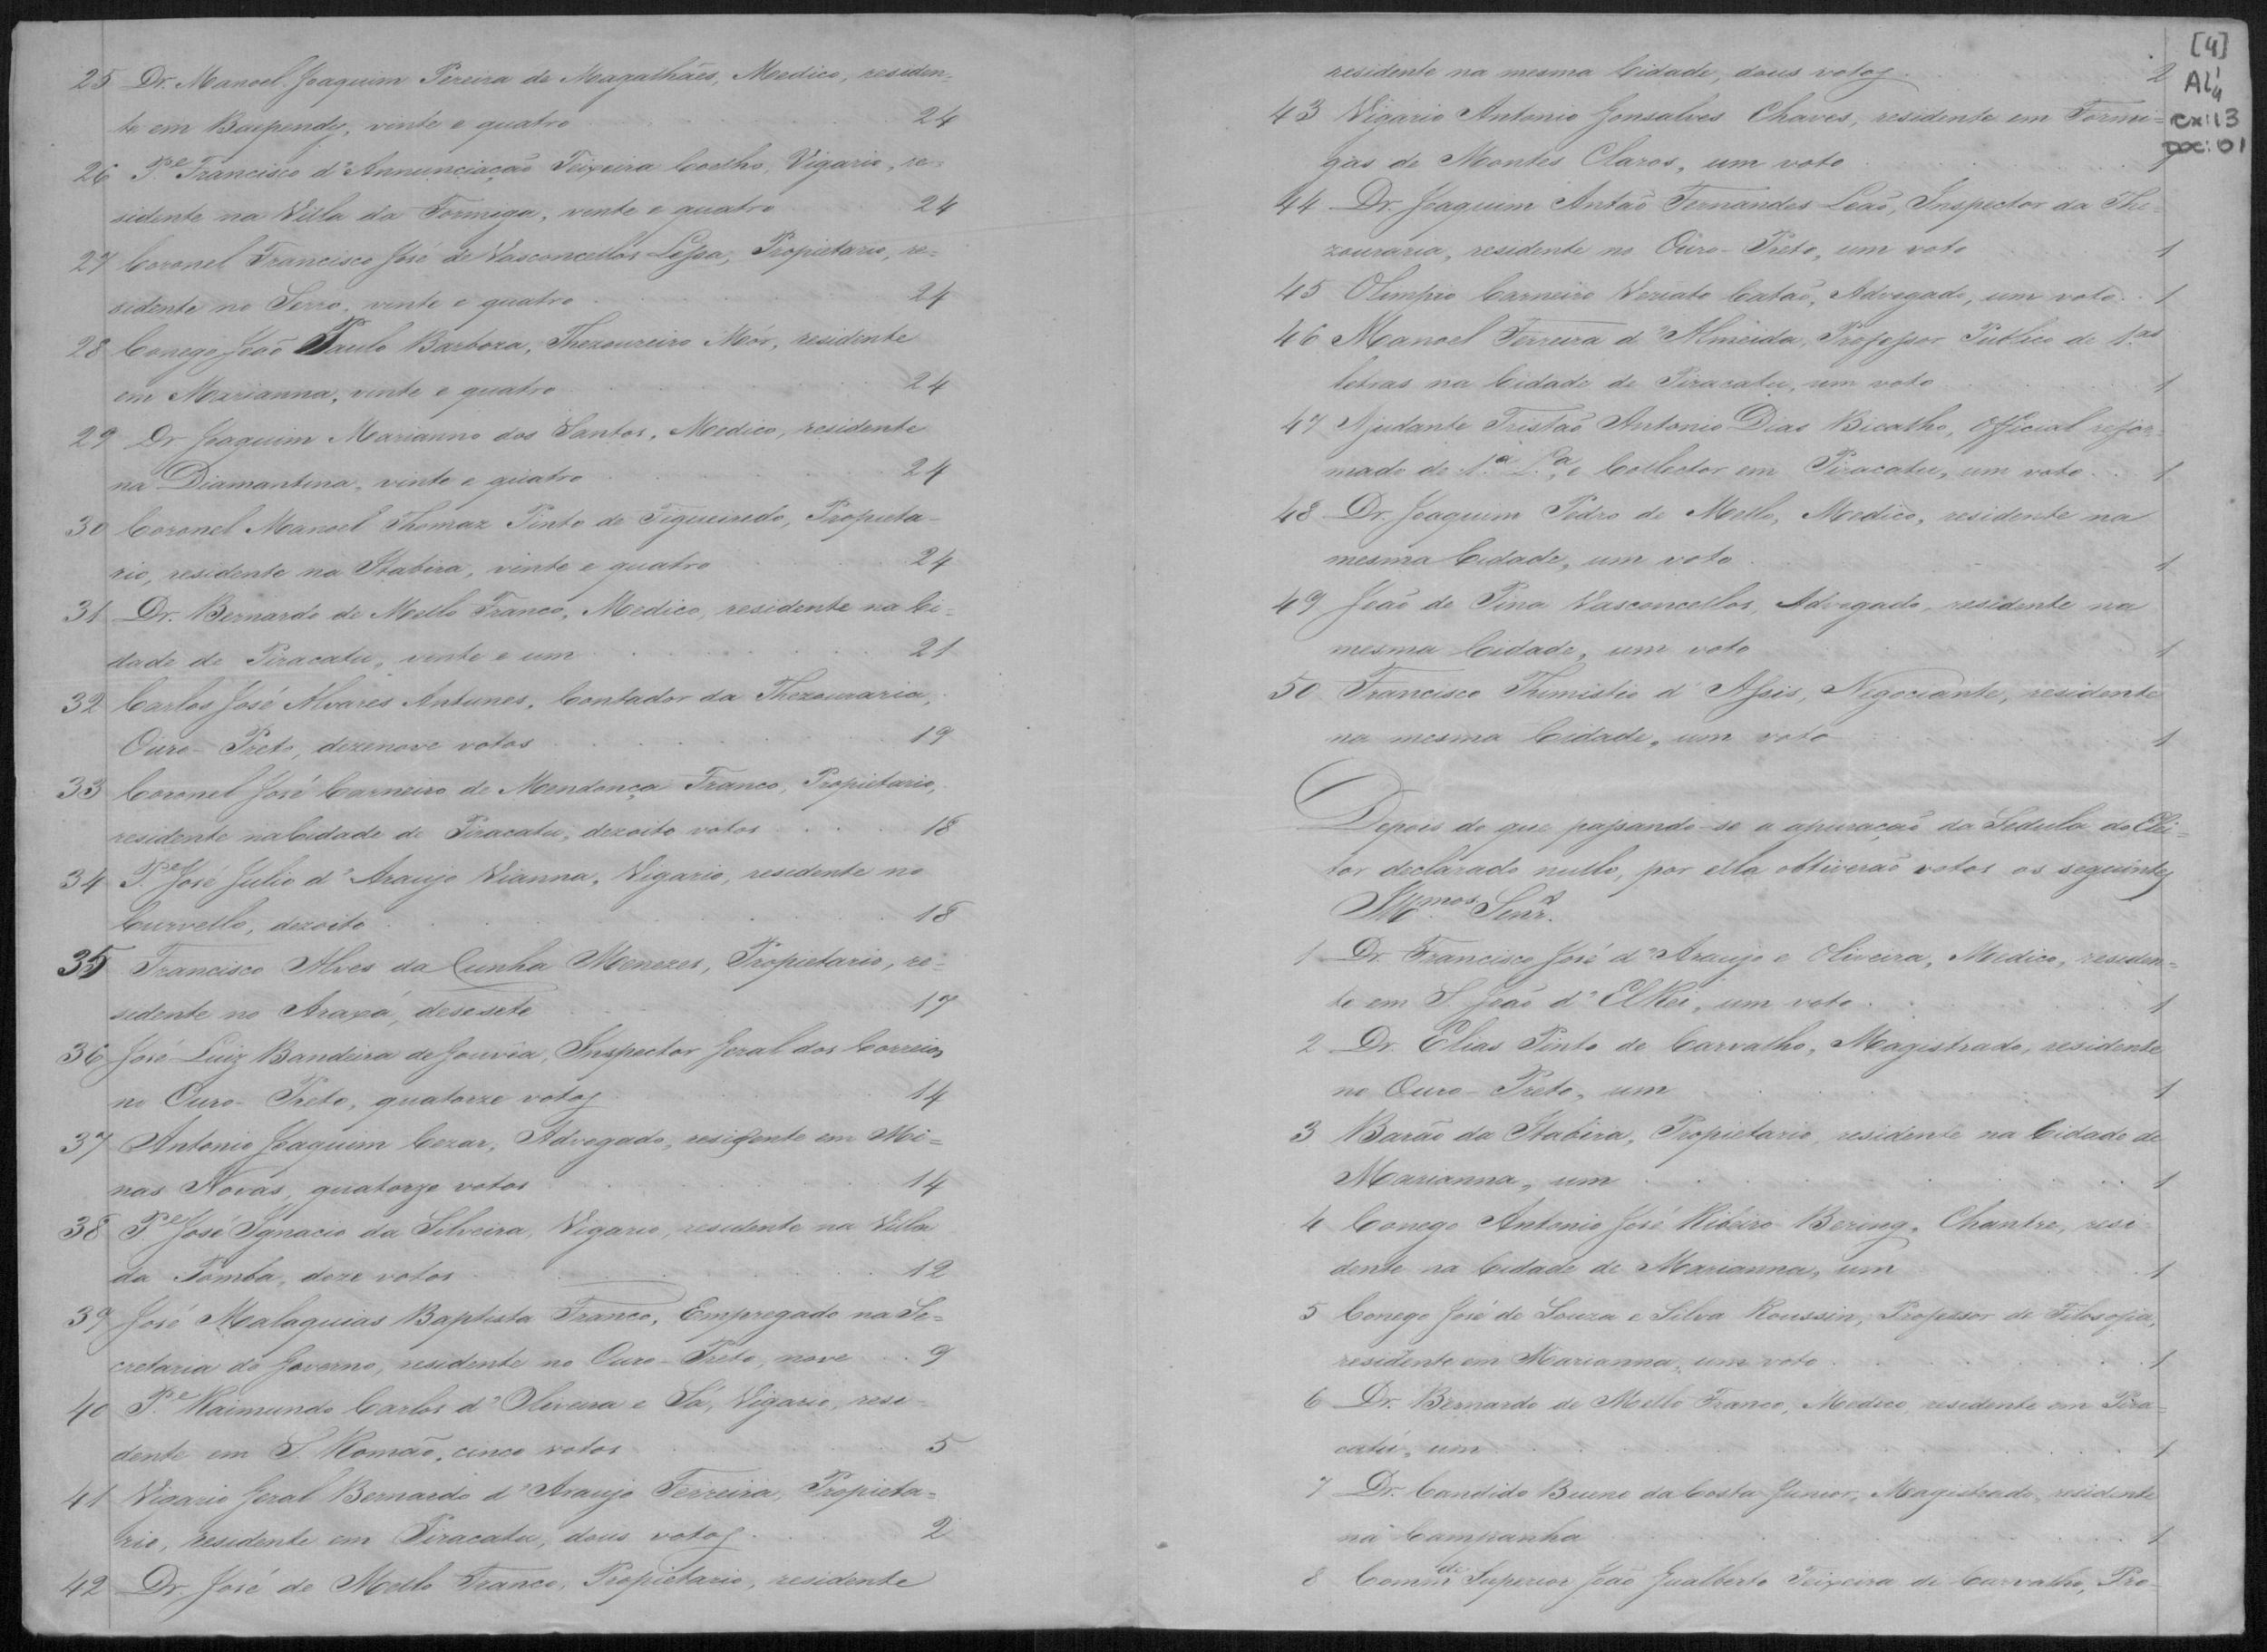 25 Dr. Manoel Joaquim Pereira de Magalhães, Medico, residen-
te em Baependy, vinte e quatro 24
26 P.e Francisco d'Annunciação Teixeira Coelho, Vigario, re-
sidente na Villa da Formiga, vente e quatro 24
27 Coronel Francisco José de Vasconcellos Lessa, Propietario, re-
sidente no Serro, vente e quatro 24
28 Conego João Paulo Barboza, Thezoureiro Mór, residente
em Marianna, vinte e quatro 24
29 Dr Joaquim Marianno dos Santos, Medico, residente
na Diamantina, vinte e quatro 24
30 Coronel Manoel Thomaz Pinto de Figueiredo, Propieta-
rio, residente na Itabira, vinte e quatro 24
31 Dr. Bernardo de Mello Franco, Medico, residente na Ci-
dade de Piracatu, vente e um 21
32 Carlos José Alvares Antunes, Contador da Thezouraria,
Ouro-Preto, dezenove votos 19
33 Coronel José Carneiro de Mendonça Franco, Propietario,
residente na Cidade de Piracatu, dezoito votos 18
34 P.e José Julio d'Araujo Vianna, Vigario, residente no
Curvello, dezoito 18
35 Francisco Alves da Cunha Menezes, Propietario, re-
sidente no Araxá, desesete 17
36 José Luiz Bandeira de Gouvêa, Inspector Geral dos Correios
no Ouro-Preto, quatorze votos 14
37 Antonio Joaquim Cezar, Advogado, residente em Mi-
nas Novas, quatorze votos 14
38 P.e José Ignacio da Silveira, Vigario, residente na Villa
da Pomba, doze votos 12
39 José Malaquias Baptista Franco, Empregado na Se-
cretaria do Governo, residente no Ouro-Preto, nove 9
40 P.e Raimundo Carlos d'Oliveira e Sá, Vigario, resi-
dente em S. Romão, cinco votos 5
41 Vigario Geral Bernardo d'Araujo Ferreira, Propieta-
rio, residente em Piracatu, dous votos 2
42 Dr. José de Mello Franco, Propietario, residente
[4]
AL¹4
cx:13
DOC:01
residente na mesma Cidade, dous votos 2
43 Vigario Antonio Gonsalves Chaves, residente em Formi-
gas de Montes Claros, um voto 1
44 Dr. Joaquim Antão Fernandes Leão, Inspector da The-
zouraria, residente no Ouro-Preto, um voto 1
45 Olimpio Carneiro Veriato Catão, Advogado, um voto 1
46 Manoel Ferreira d'Almeida, Professor Publico de 1.as
letras na Cidade de Piracatu, um voto 1
47 Ajudante Tristão Antonio Dias Bicalho, Official refor-
mado de 1.a L.a, e Collector em Piracatu, um voto 1
48 Dr. Joaquim Pedro de Mello, Medico, residente na
mesma Cidade, um voto 1
49 João de Pina Vasconcellos, Advogado, residente na
mesma Cidade, um voto 1
50 Francisco Themistio d'Assis, Negociante, residente
na mesma Cidade, um voto 1
Depois do que passando-se a apuração da Sedula do Elei-
tor declarado nullo, por ella obtiverão votos os seguintes
Ill.mos Senr.s
1 Dr. Francisco José d'Araujo e Oliveira, Medico, residen-
te em S. João d'El Rei, um voto 1
2 Dr. Elias Pinto de Carvalho, Magistrado, residente
no Ouro-Preto, um 1
3 Barão da Itabira, Propietario, residente na Cidade de
Marianna, um 1
4 Conego Antonio José Ribeiro Bering, Chantre, resi-
dente na Cidade de Marianna, um 1
5 Conego José de Souza e Silva Roussin, Professor de Filosofia,
residente em Marianna, um voto 1
6 Dr. Bernardo de Mello Franco, Medico, residente em Pira-
catú, um 1
7 Dr. Candido Bueno da Costa Junior, Magistrado, residente
na Campanha 1
8 Comm.de Superior João Gualberto Teixeira de Carvalho, Pro-